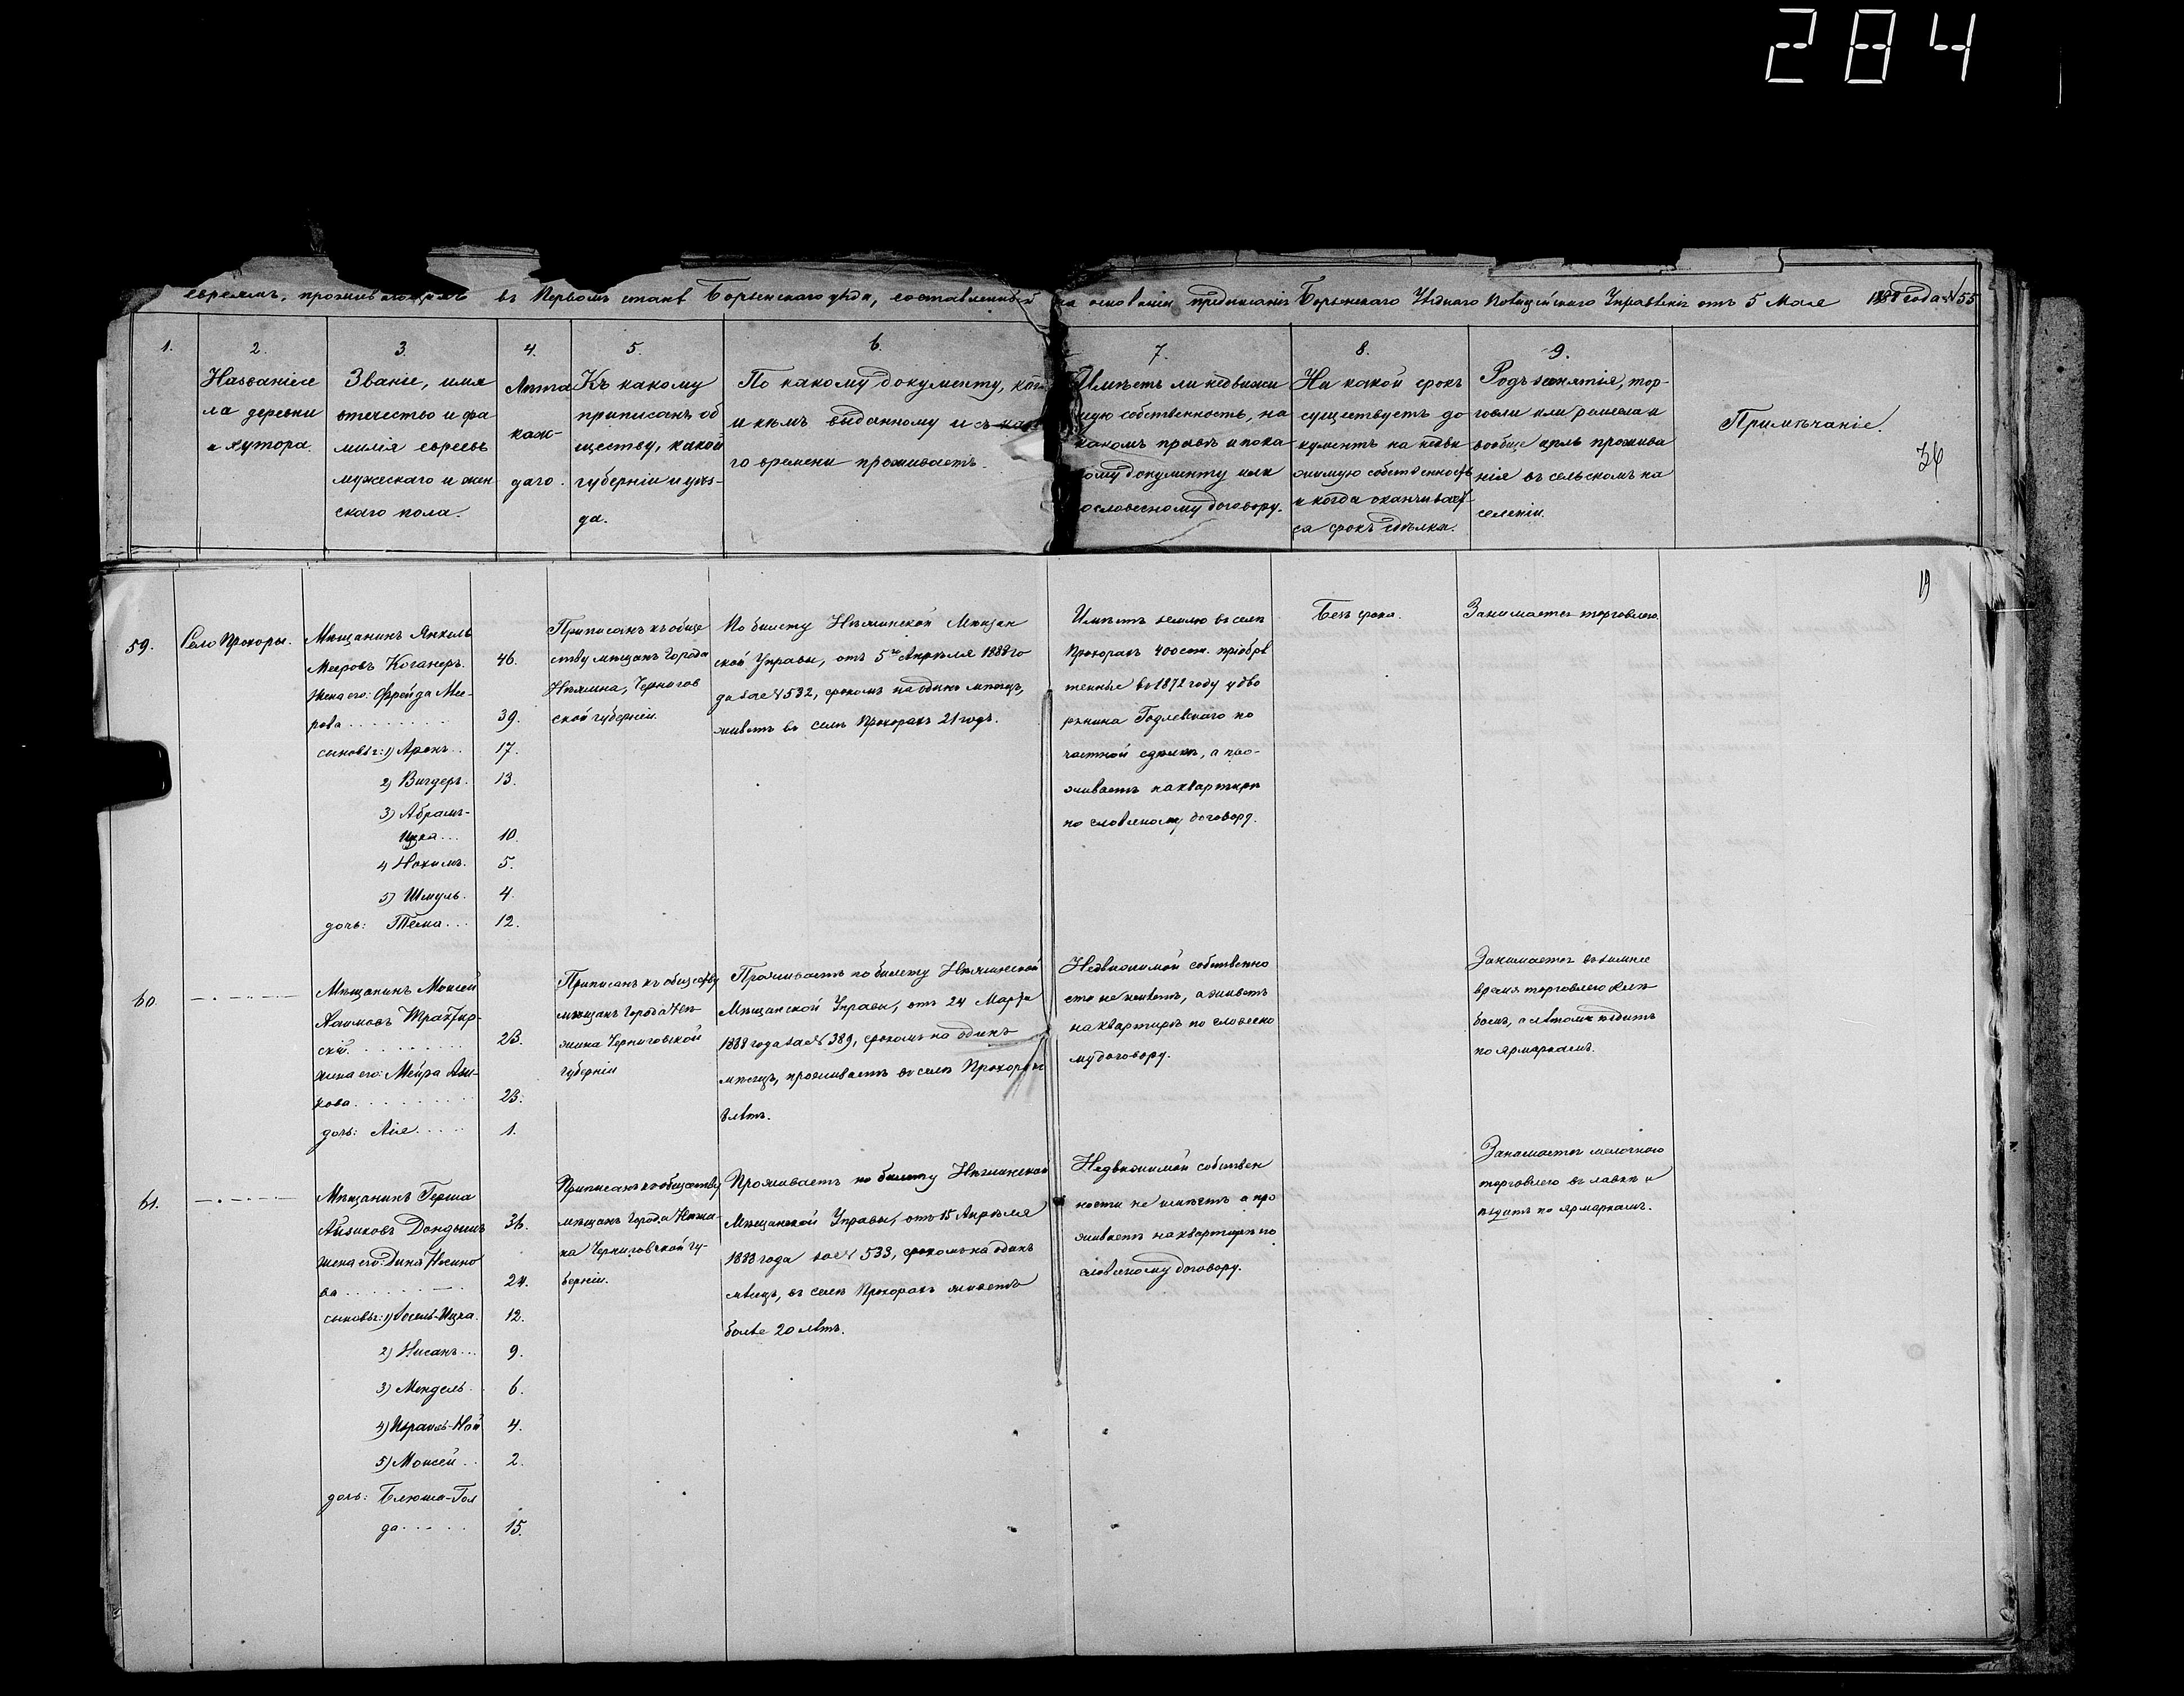 284
евреямъ, проживающимъ въ Первомъ станѣ Борзенскаго уѣзда, составленный на основаніи предписанія Борзенскаго Уѣзднаго Полицейскаго Управленія отъ 5 Мая 1888 года № 55
1. 2. 3. 4. 5. 6. 7. 8. 9.
Названіе се
ла деревни
и хутора.
Званіе, имя
отчество и фа
милія евреевъ
мужескаго и жен
скаго пола.
Лѣта
каж-
даго.
Къ какому
приписанъ об
ществу, какой
губерніи и уѣз-
да.
По какому документу, кѣмъ
и кѣмъ выданному и съ како
го времени проживаетъ.
Имѣетъ ли недвижи
мую собственность, на
какомъ правѣ и по ка
кому документу или
словесному договору.
На какой срокъ
существуетъ до
кументъ на недви
жимую собственность
и когда оканчивает
ся срокъ сдѣлки.
Родъ занятія, тор-
говли или ремесла и
вообще цѣль прожива
нія въ сельскомъ на
селеніи.
Примѣчаніе.
36
19
59.
Село Прохоры.
Мѣщанинъ Янкель
Мееровъ Коганеръ.
46.
Жена его: Фрейда Ме-
рова
39.
сыновья: 1) Аронъ.. 17.
2) Вигдеръ. 13.
3) Абрамъ-
Ицка... 10.
4) Нохимъ. 5.
5) Шмуль. 4.
дочь: Тема... 12.
Приписанъ къ обще
ству мѣщанъ Города
Нѣжина, Чернигов
ской губерніи.
По билету Нѣжинской Мѣщан
ской Управы, отъ 5го Апрѣля 1888 го
да за № 532, срокомъ на одинъ мѣсяцъ,
живетъ въ селѣ Прохорахъ 21 годъ.
Имѣетъ землю въ селѣ
Прохорахъ 400 саж. пріобрѣ
тенные въ 1872 году у дво
рянина Годлевскаго по
частной сдѣлкѣ, а про-
живаетъ на квартирѣ
по словесному договору.
Безъ срока.
Занимается торговлею.
60.
Мѣщанинъ Моисей
Хаимовъ Трактир-
скій.
23.
жена его: Мейра Ази-
кова
23.
дочь: Хая 1.
Приписанъ къ обществу
мѣщанъ Города Нѣ-
жина Черниговской
губерніи
Проживаетъ по билету Нѣжинской
Мѣщанской Управы, отъ 24 Марта
1888 года за № 389, срокомъ на одинъ
мѣсяцъ, проживаетъ въ селѣ Прохорахъ
лѣтъ.
Недвижимой собственно
сти не имѣетъ, а живетъ
на квартирѣ по словесно
му договору.
Занимается въ зимнее
время торговлею хлѣ
бомъ, а лѣтомъ ѣздитъ
по ярмаркамъ.
61.
Мѣщанинъ Герша
Айзиковъ Дондышъ
36.
жена его: Дыня Носино
ва
24.
сыновья: 1) Іосель-Ицка. 12.
2) Нисанъ... 9.
3) Мендель. 6.
4) Израиль-Ной 4.
5) Моисей.. 2.
дочь: Блюма-Гол
да..... 15.
Приписанъ къ обществу
мѣщанъ Города Нѣжи-
на Черниговской гу-
берніи.
Проживаетъ по билету Нѣжинской
Мѣщанской Управы, отъ 15 Апрѣля
1888 года за № 533, срокомъ на одинъ
мѣсяцъ, въ селѣ Прохорахъ живетъ
болѣе 20 лѣтъ.
Недвижимой собствен
ности не имѣетъ а про
живаетъ на квартирѣ по
словесному договору.
Занимается мелочною
торговлею въ лавкѣ и
ѣздитъ по ярмаркамъ.